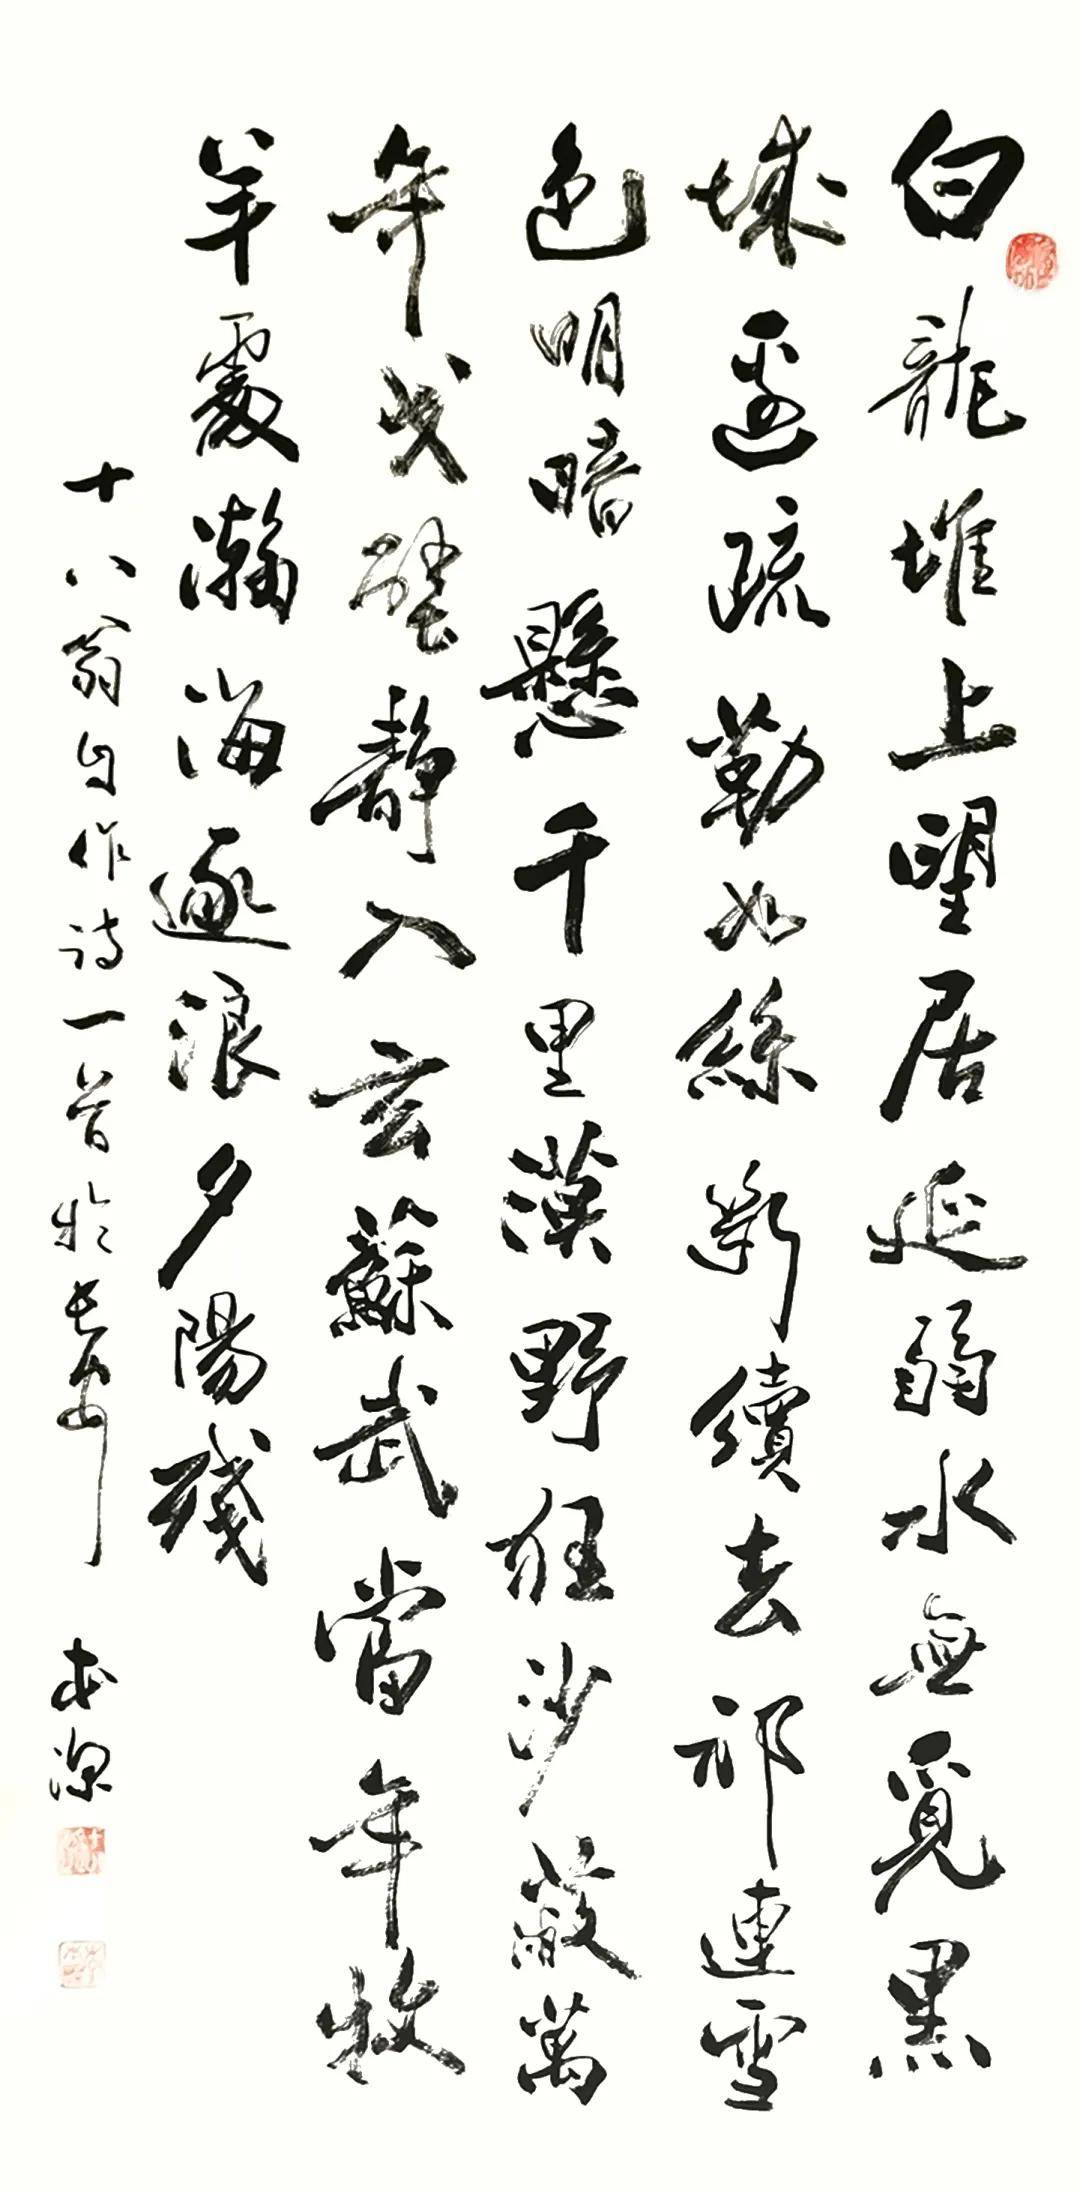 白龍堆上望居延弱水無覓黑
城邊疏勒如絲斷續去祁連雪
色明暗懸千里漠野狂沙蔽萬
年戈壁靜入玄蘇武當年牧
羊處瀚海逐浪夕陽殘
十八翁自作詩一首於長安